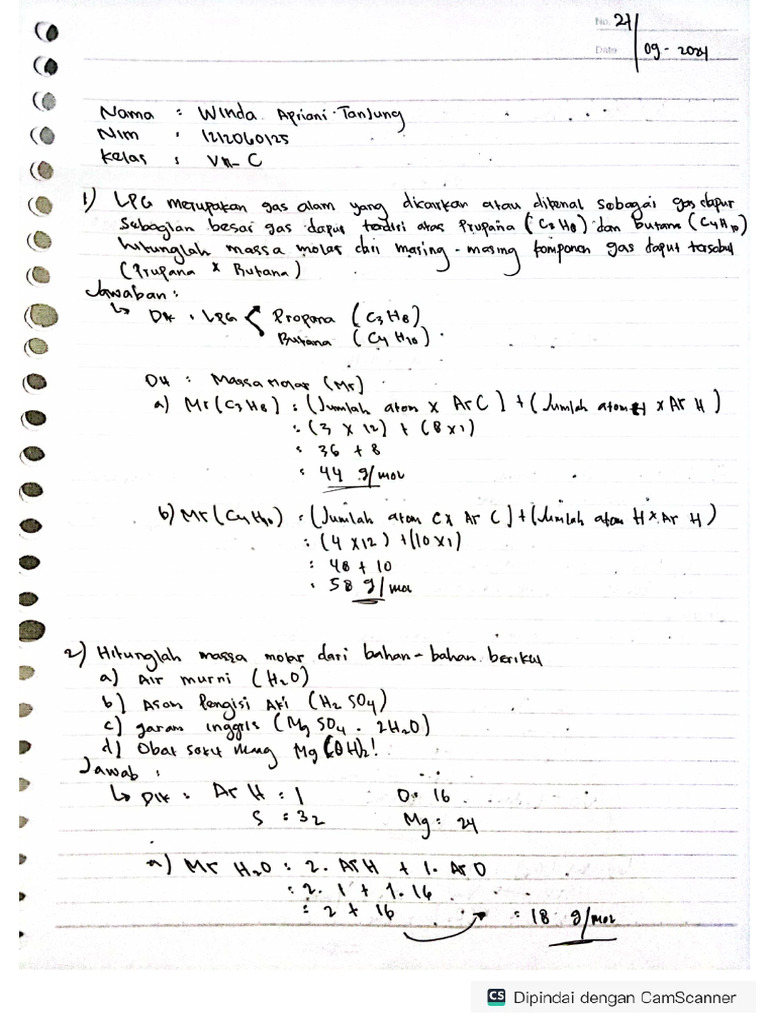 No. 21
Date 09 - 2024
Nama : Winda Apriani Tanjung
Nim : 1212060125
Kelas : VII - C
1) LPG merupakan gas alam yang dicairkan atau dikenal sebagai gas dapur
Sebagian besar gas dapur terdiri atas Prupana (C3H8) dan Butana (C4H10)
hitunglah massa molar dari masing - masing komponen gas dapur tersebut
(Prupana & Butana)
Jawaban :
↳ Dik : LPG < Propana (C3H8)
Butana (C4H10)
Dit : Massa Molar (Mr)
a) Mr (C3H8) : (Jumlah atom x Ar C) + (Jumlah atom H x Ar H)
: (3 x 12) + (8 x 1)
: 36 + 8
: 44 g/mol
b) Mr (C4H10) : (Jumlah atom C x Ar C) + (Jumlah atom H x Ar H)
: (4 x 12) + (10 x 1)
: 48 + 10
: 58 g/mol
2) Hitunglah massa molar dari bahan - bahan berikut
a) Air murni (H2O)
b) Asam Pengisi Aki (H2SO4)
c) garam inggris (MgSO4 . 2H2O)
d) Obat sakit Mg(OH)2!
Jawab :
↳ Dik : Ar H : 1 O : 16
S : 32 Mg : 24
a) Mr H2O : 2. Ar H + 1. Ar O
: 2. 1 + 1. 16
: 2 + 16 : 18 g/mol
CS Dipindai dengan CamScanner